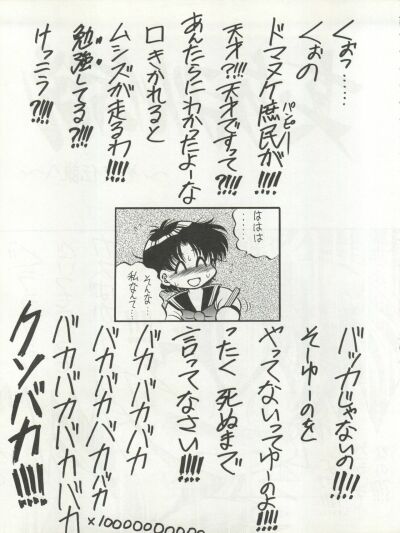 くぉっ……
くぉの
ドマヌケ庶民が!!!!
パンピー
天才?!!!天才ですって?!!!!
あんたらにわかったよーな
口きかれると
ムシズが走るわ!!!!
勉強してる?!!!!
けっこう?!!!!
ははは
……
そんな…
私なんて…
バッカじゃないの!!!!
そーゆーのを
やってないってゆーのよ!!!!
ったく死ぬまで
言ってなさい!!!!
バカバカバカ
バカバカバカバカ
バカバカバカバカバカ
×10000000000
クソバカ!!!!